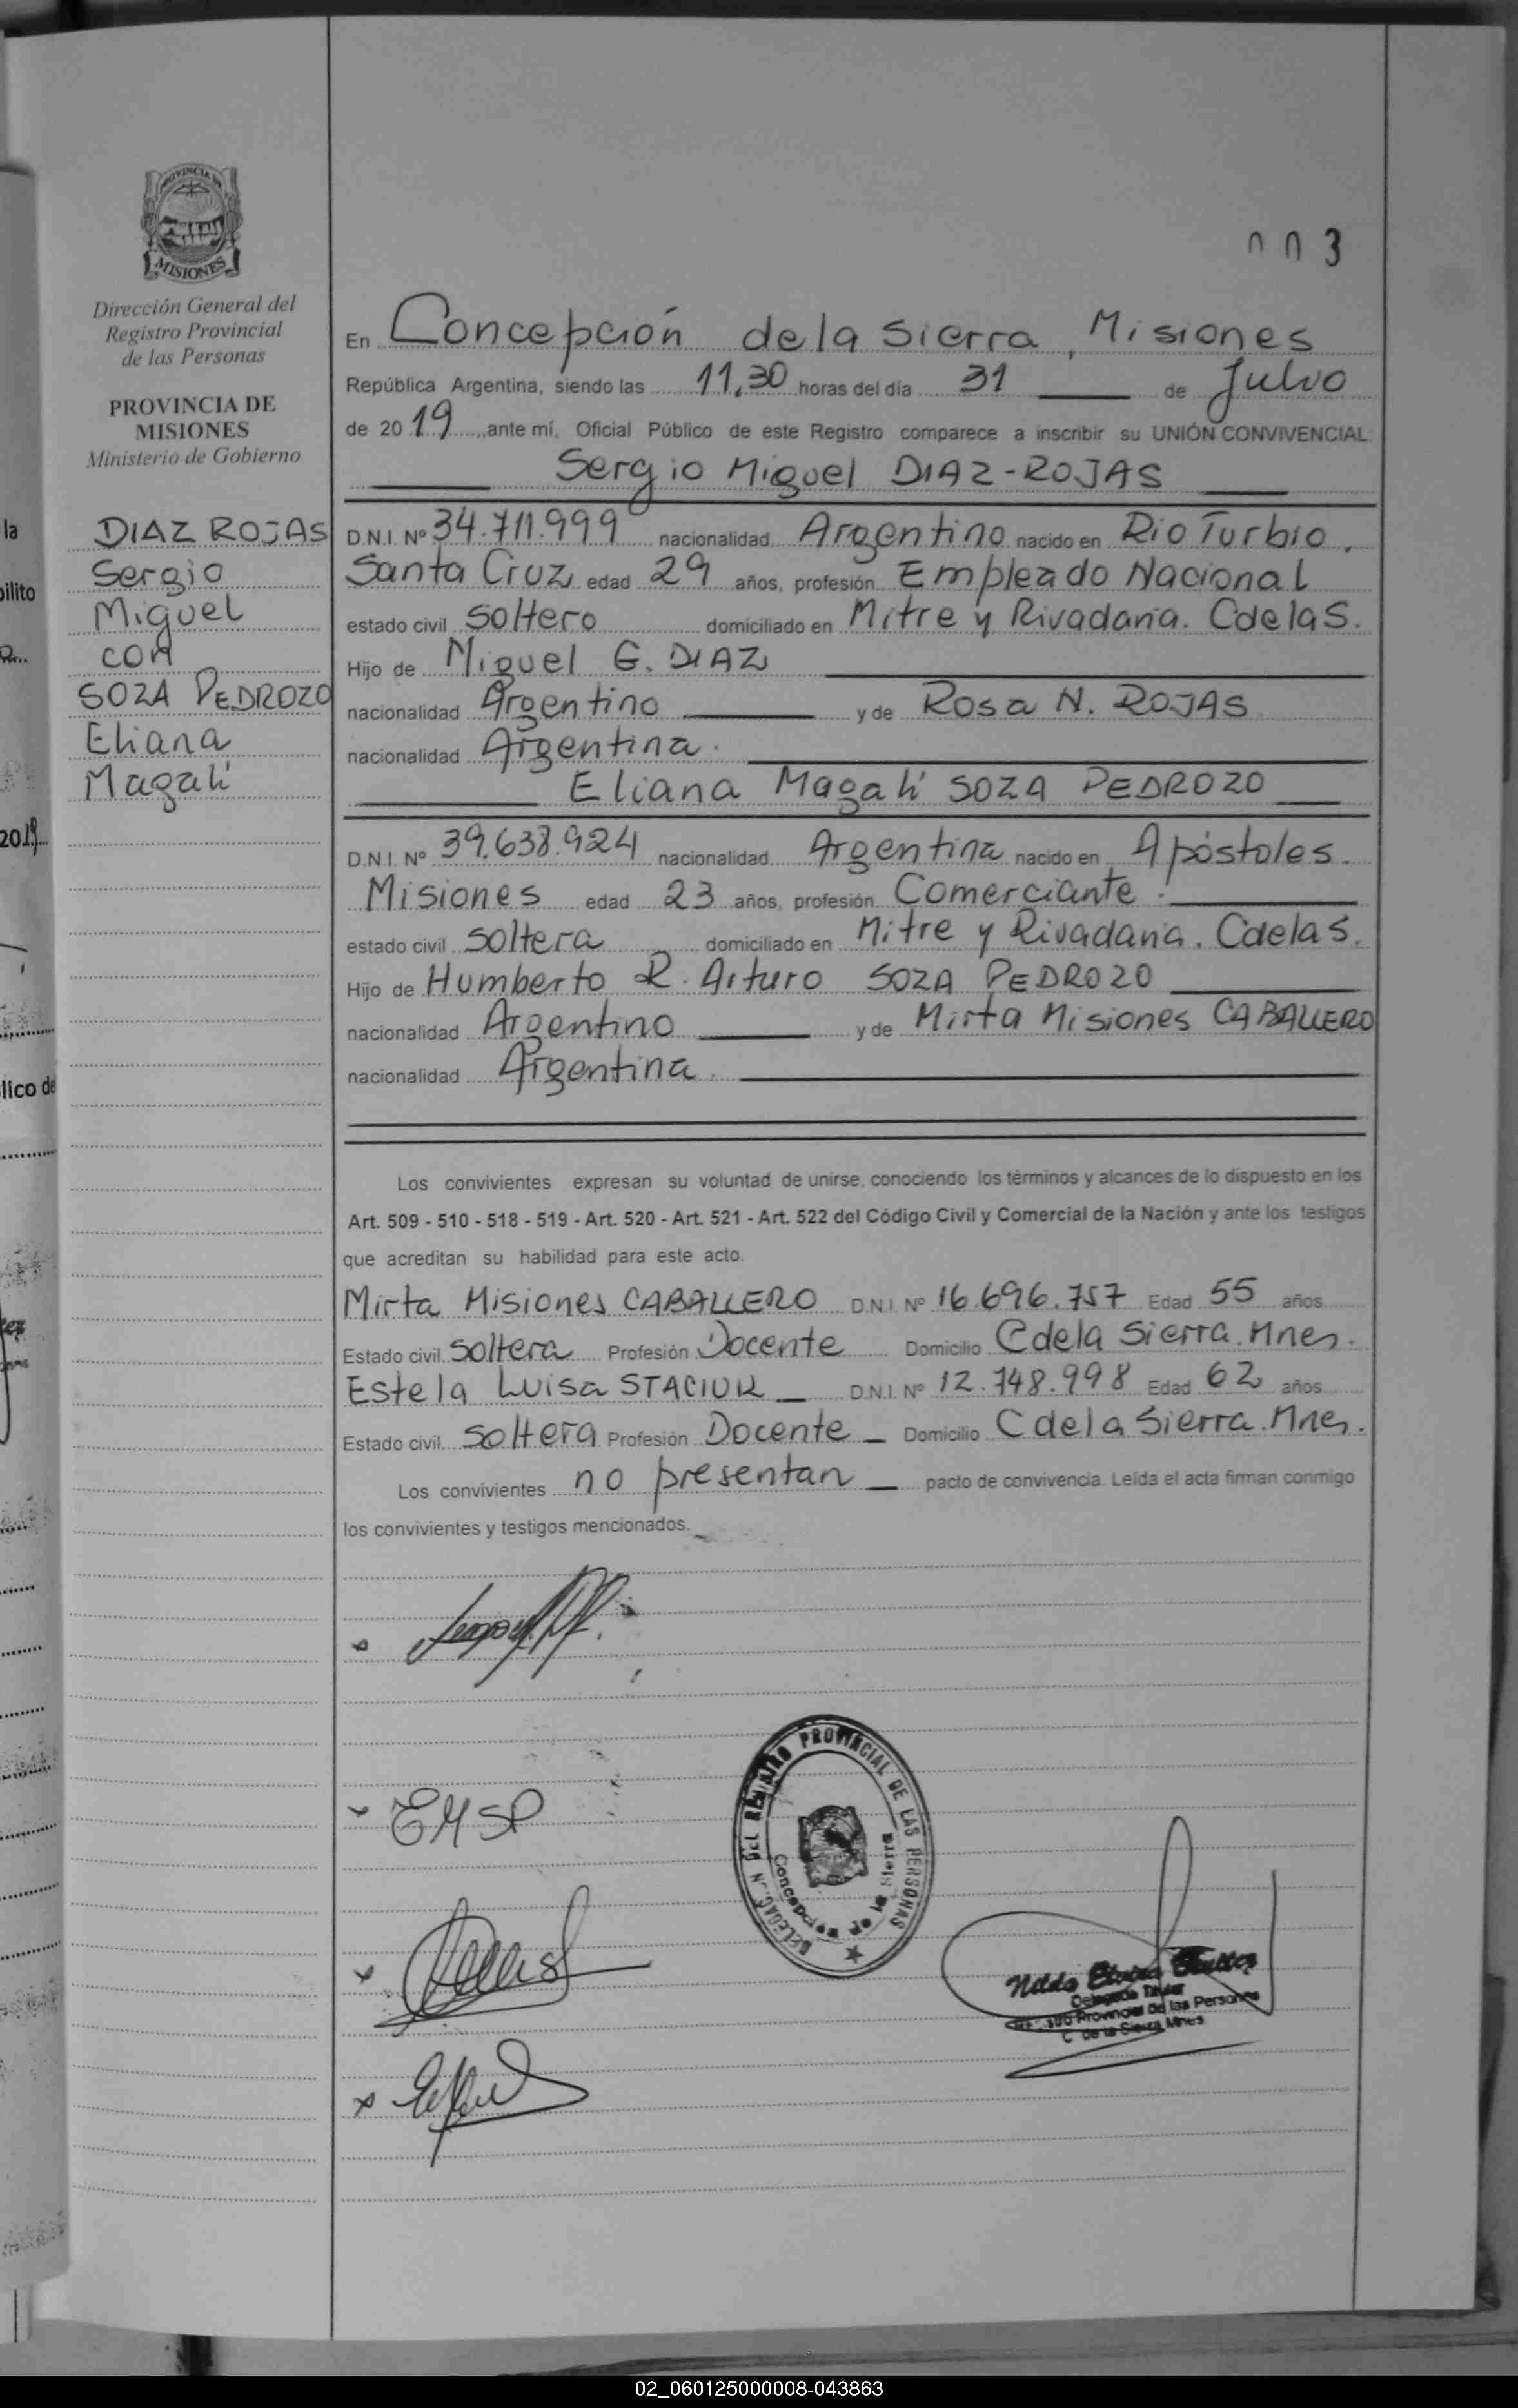 003
PROVINCIA DE
MISIONES
Dirección General del
Registro Provincial
de las Personas
PROVINCIA DE
MISIONES
Ministerio de Gobierno
DIAZ ROJAS
Sergio
Miguel
con
SOZA PEDROZO
Eliana
Magalí
En Concepción de la Sierra, Misiones
República Argentina, siendo las 11,30 horas del día 31 de Julio
de 2019 ante mí, Oficial Público de este Registro comparece a inscribir su UNIÓN CONVIVENCIAL:
Sergio Miguel DIAZ-ROJAS
D.N.I. Nº 34.711.999 nacionalidad Argentino nacido en Rio Turbio,
Santa Cruz edad 29 años, profesión Empleado Nacional
estado civil soltero domiciliado en Mitre y Rivadavia. CdelaS.
Hijo de Miguel G. DIAZ
nacionalidad Argentino y de Rosa N. ROJAS
nacionalidad Argentina.
Eliana Magalí SOZA PEDROZO
D.N.I. Nº 39.638.924 nacionalidad Argentina nacido en Apóstoles.
Misiones edad 23 años, profesión Comerciante.
estado civil soltera domiciliado en Mitre y Rivadavia. CdelaS.
Hijo de Humberto R. Arturo SOZA PEDROZO
nacionalidad Argentino y de Mirta Misiones CABALLERO
nacionalidad Argentina.
Los convivientes expresan su voluntad de unirse, conociendo los términos y alcances de lo dispuesto en los
Art. 509 - 510 - 518 - 519 - Art. 520 - Art. 521 - Art. 522 del Código Civil y Comercial de la Nación y ante los testigos
que acreditan su habilidad para este acto.
Mirta Misiones CABALLERO D.N.I. Nº 16.696.757 Edad 55 años
Estado civil soltera Profesión Docente Domicilio C de la Sierra. Mnes.
Estela Luisa STACIUK D.N.I. Nº 12.748.998 Edad 62 años
Estado civil soltera Profesión Docente Domicilio C de la Sierra. Mnes.
Los convivientes no presentan pacto de convivencia. Leída el acta firman conmigo
los convivientes y testigos mencionados.
EMSP
DELEGACION DEL REGISTRO PROVINCIAL DE LAS PERSONAS
Concepción de la Sierra
Nilda
Delegada Titular
Provincial de las Personas
C de la Sierra Mnes
la
2019
lico de
02_060125000008-043863